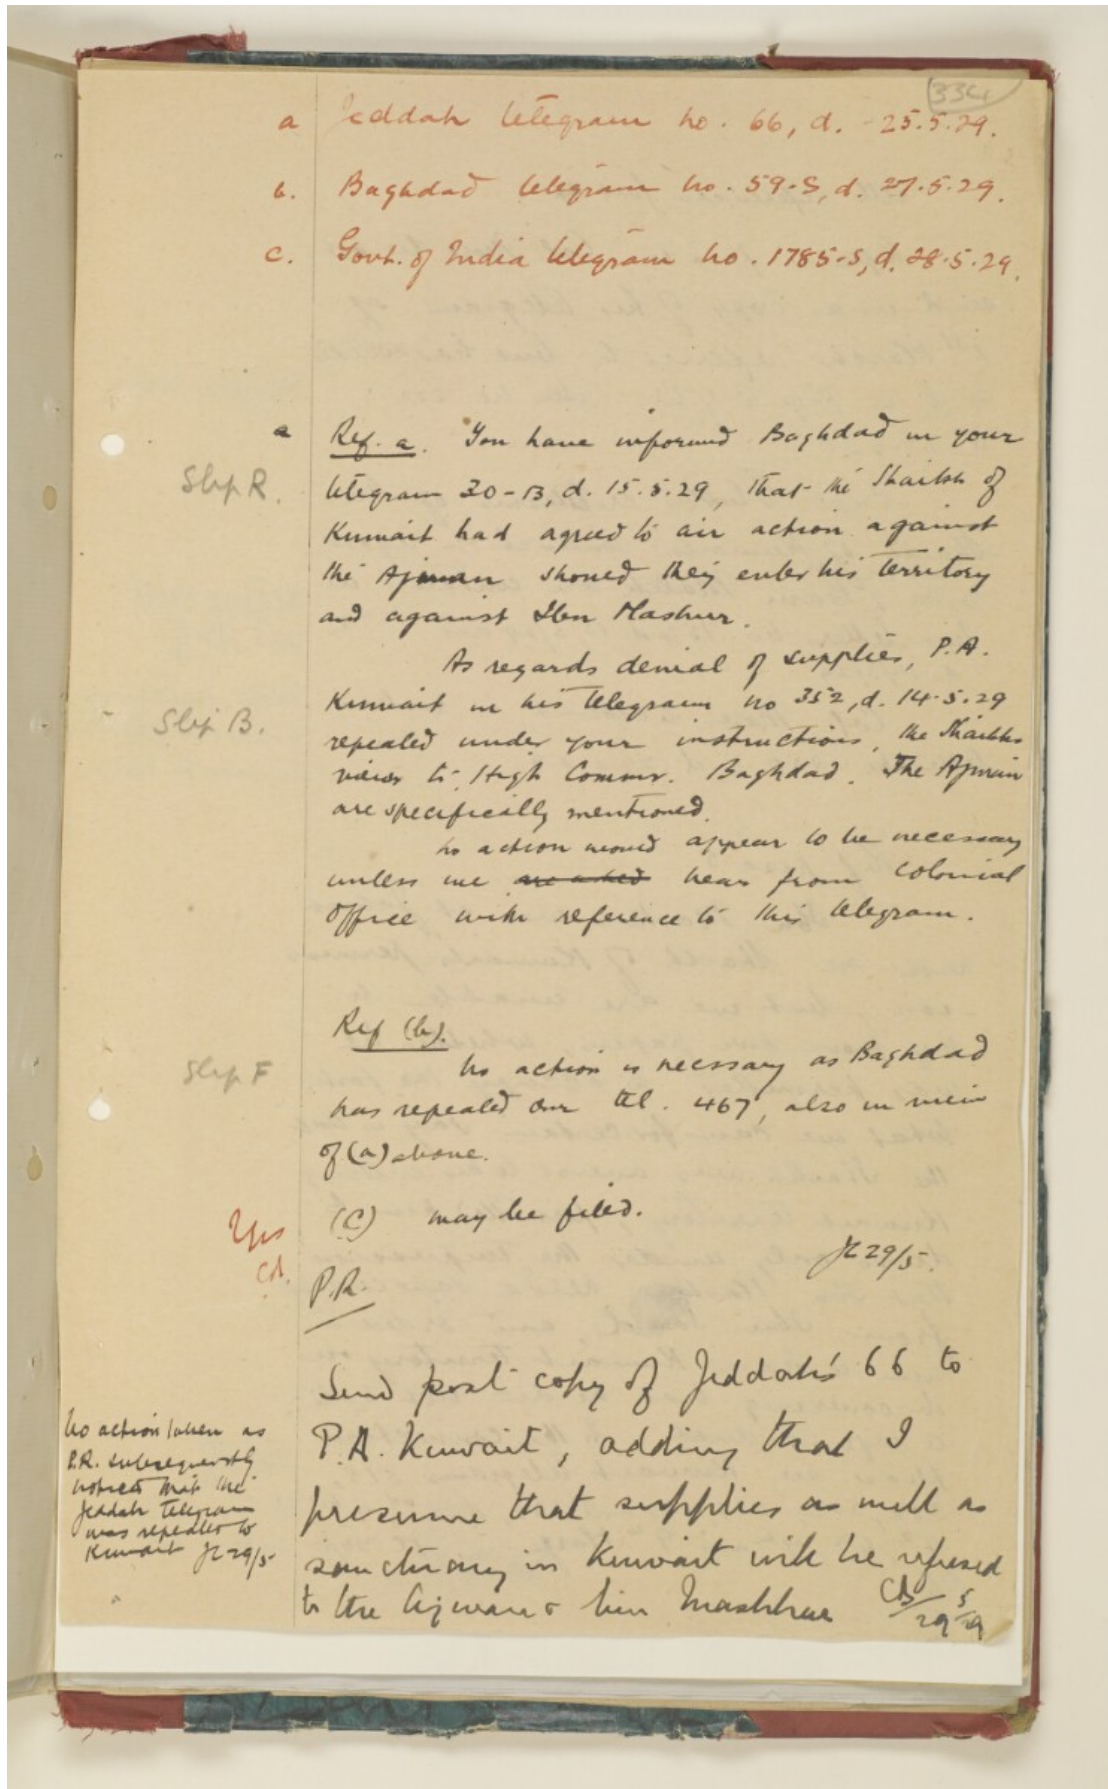 334
a Jeddah telegram no. 66, d. 25.5.29.
b. Baghdad telegram no. 59-S, d. 27.5.29.
c. Govt. of India telegram no. 1785-S, d. 28.5.29.
a Ref. a. You have informed Baghdad in your
Slip R. telegram 30-B, d. 15.5.29, that the Shaikh of
Kuwait had agreed to air action against
the Ajman should they enter his territory
and against Ibn Mashur.
As regards denial of supplies, P.A.
Kuwait in his telegram no 352, d. 14.5.29
Slip B. repeated under your instructions, the Shaikhs
views to High Commr. Baghdad. The Ajman
are specifically mentioned.
No action would appear to be necessary
unless we are asked hear from Colonial
Office with reference to this telegram.
Ref (b).
Slip F No action is necessary as Baghdad
has repeated our tel. 467, also in view
of (a) above.
Yes (C) may be filed.
29/5.
P.R.
Send post copy of Jeddah's 66 to
P.A. Kuwait, adding that I
presume that supplies as well as
sanctuary in Kuwait will be refused
to the Ajman & bin Mashhur
29/5/29
No action taken as
P.R. subsequently
noticed that the
Jeddah telegram
was repeated to
Kuwait 29/5